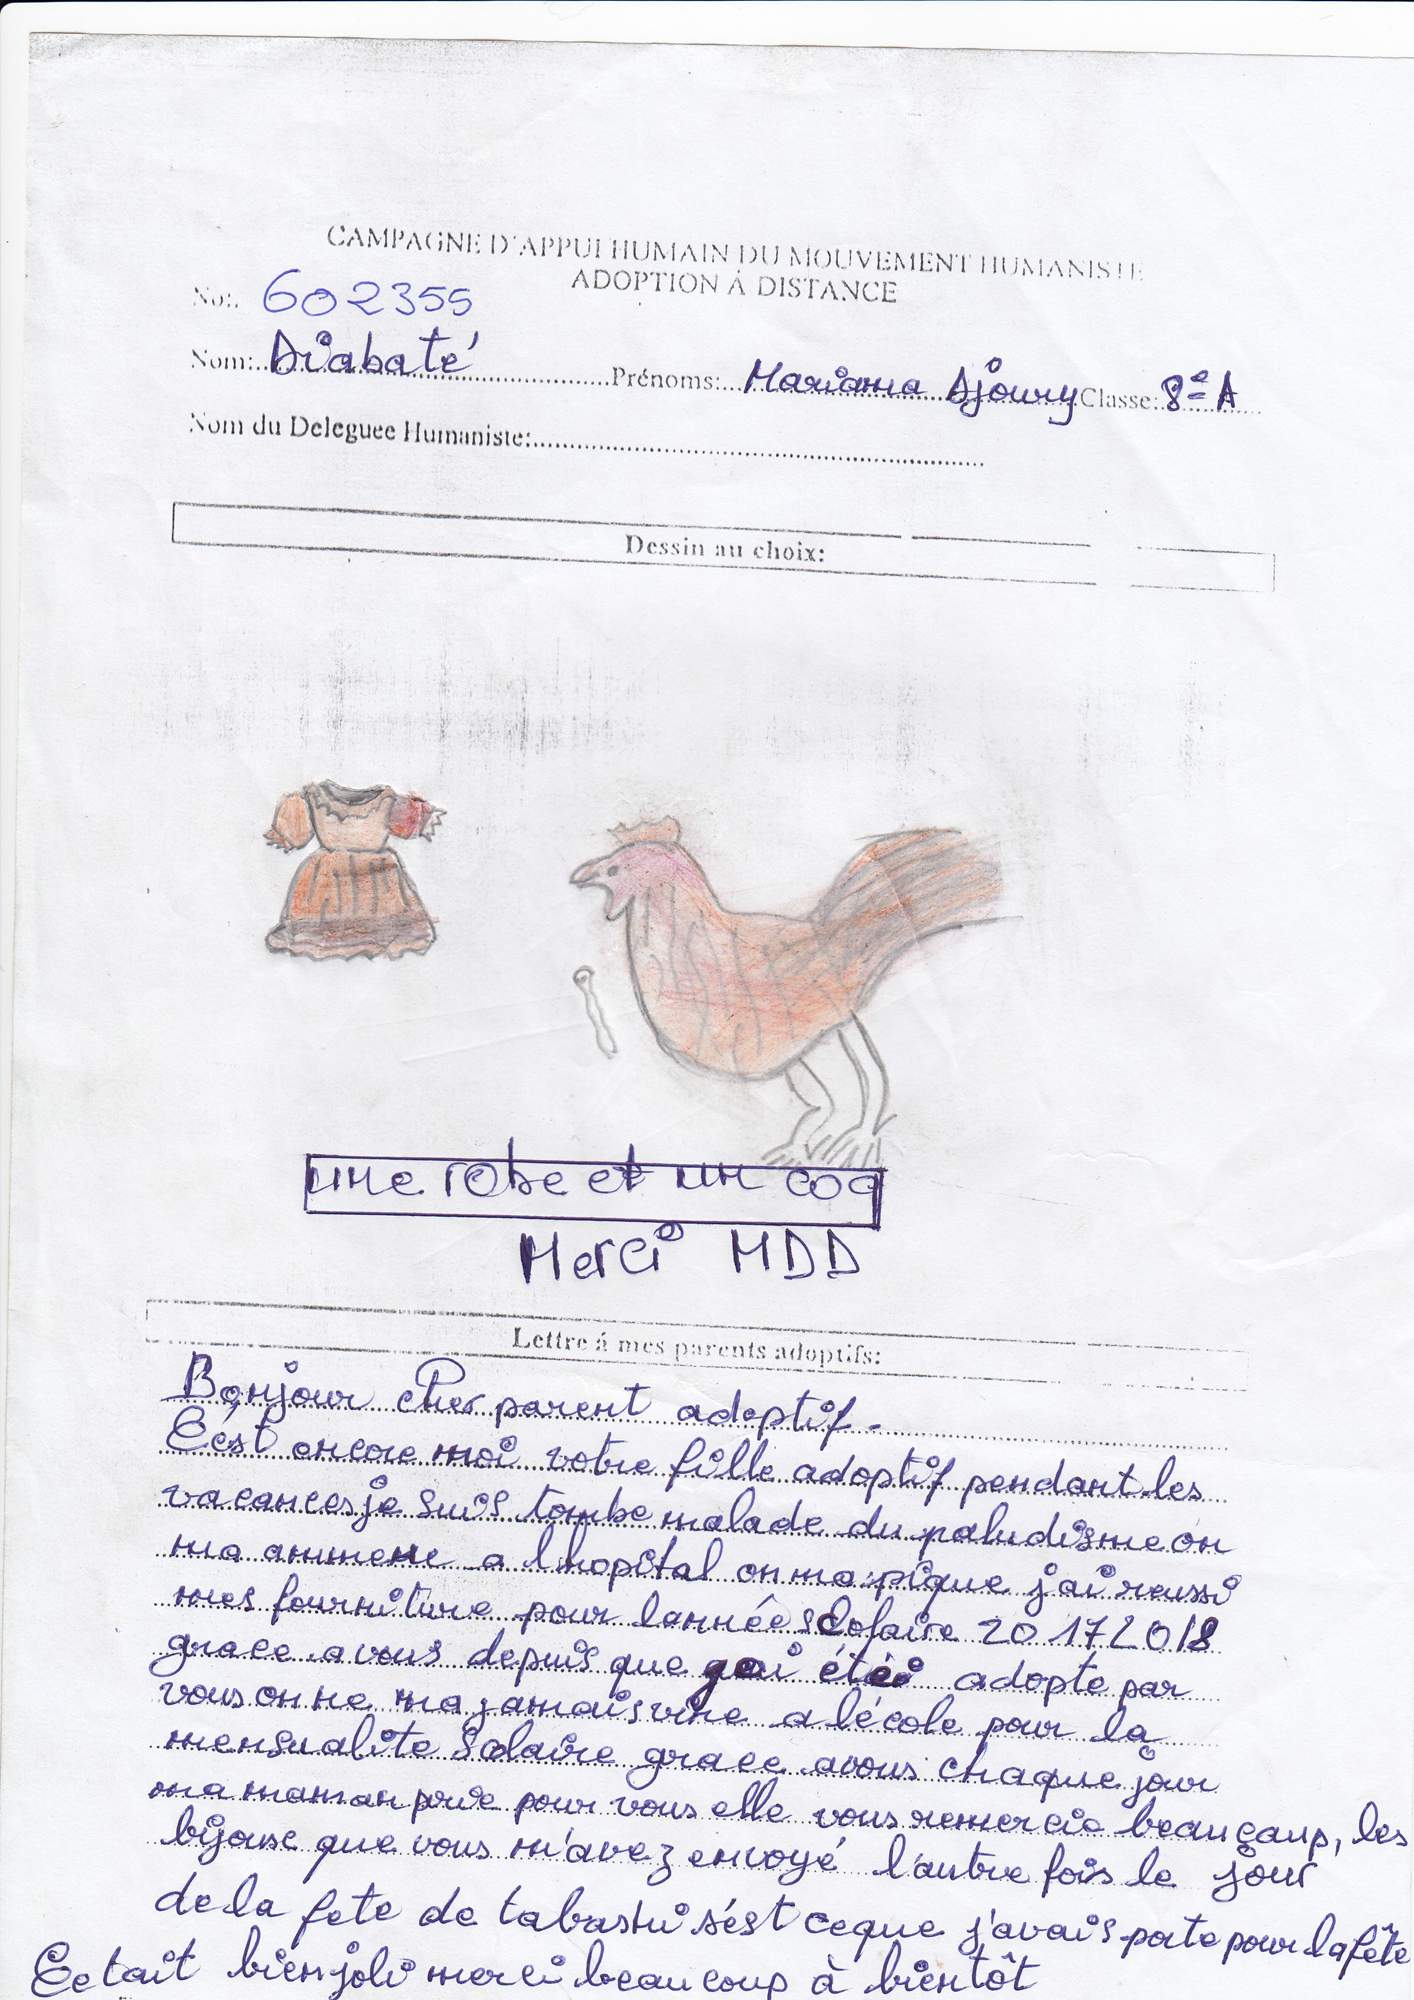 CAMPAGNE D'APPUI HUMAIN DU MOUVEMENT HUMANISTE
ADOPTION À DISTANCE
No:. 602355
Nom:Diabaté Prénoms: Mariama Djoury Classe: 8e A
Nom du Deleguee Humaniste:
Dessin au choix:
une robe et un coq
Merci MDD
Lettre á mes parents adoptifs:
Bonjour cher parent adoptif.
C'est encore moi votre fille adoptif pendant les
vacances je suis tombe malade du paludisme on
ma ammene a l'hopital on ma pique j'ai reussi
mes fourniture pour lannée scolaire 20172018
grace a vous depuis que j'ai été adopte par
vous on ne ma jamais vire a lécole pour la
mensualite solaire grace avous chaque jour
ma maman prie pour vous elle vous remercie beaucoup, les
bijoux que vous m'avez envoyé l'autre fois le jour
de la fete de tabaski s'ést ceque j'avais porte pour la fête
Cetait bien joli merci beaucoup à bientôt